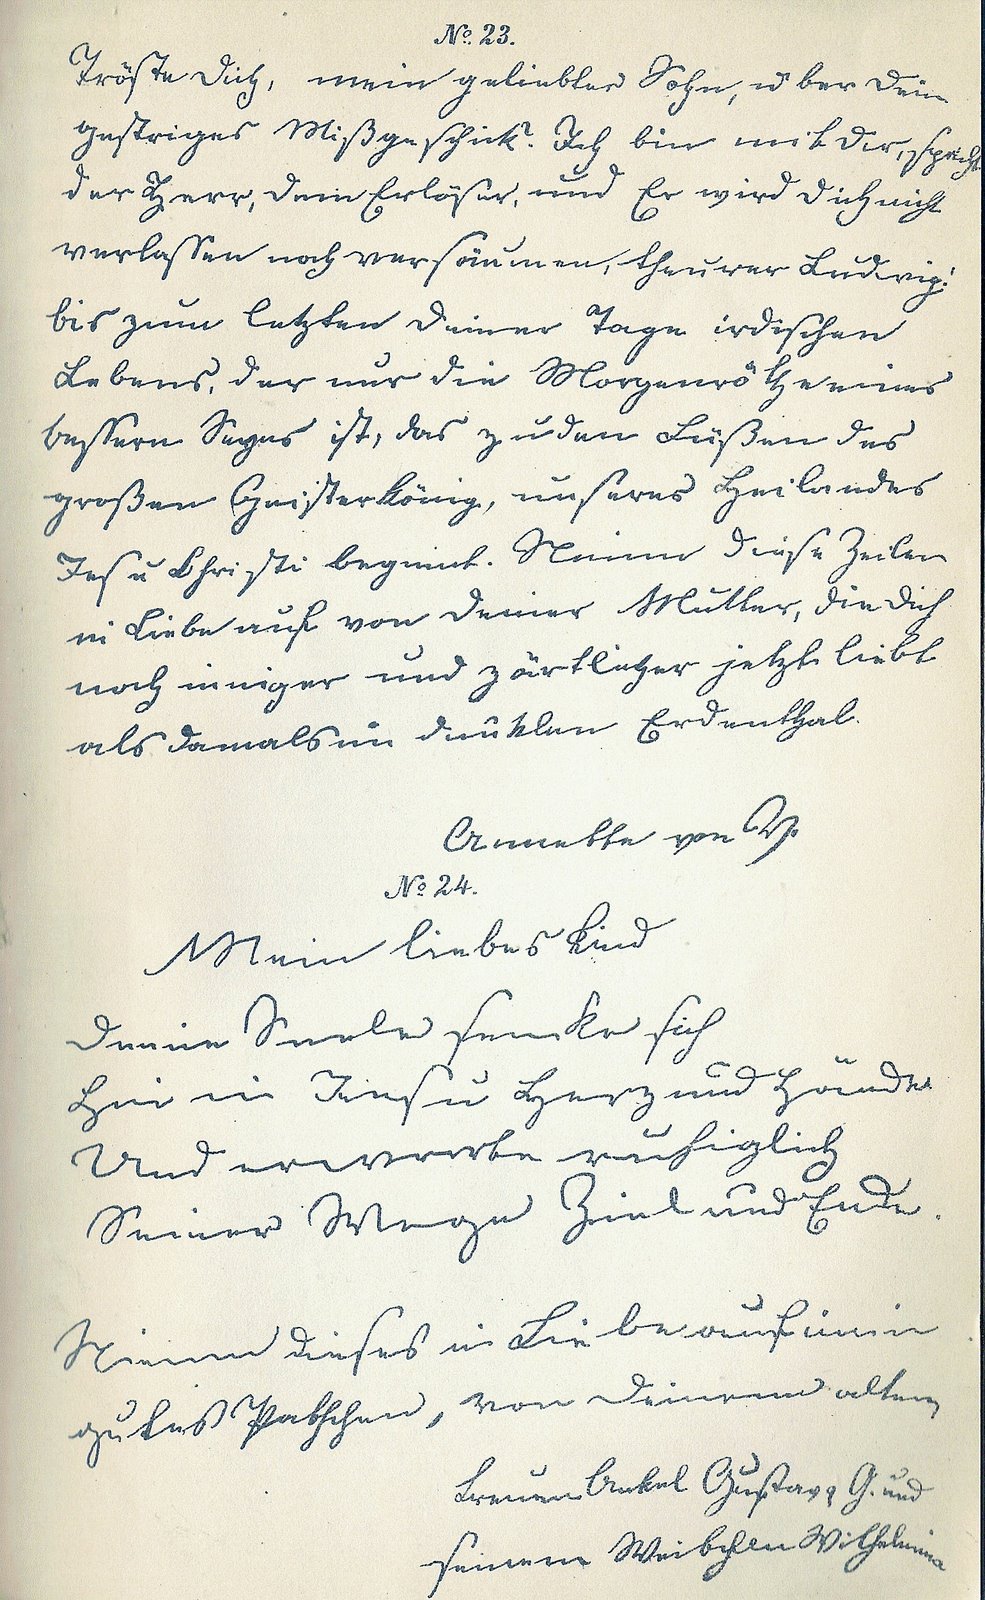 № 23.
Tröste Dich, mein geliebter Sohn, über Dein
gestriges Mißgeschick. Ich bin mit Dir, spricht
der Herr, Dein Erlöser, und Er wird Dich nicht
verlassen noch versäumen, theurer Ludwig!
bis zum letzten Deiner Tage irdischen
Lebens, der nur die Morgenröthe eines
bessern Seyns ist, das zu den Füßen des
großen Geisterkönig, unseres Heilandes
Jesu Christi beginnt. Nimm diese Zeilen
in Liebe auf von Deiner Mutter, die Dich
noch inniger und zärtlicher jetzt liebt
als damals im dunklen Erdenthal.
Annette von V.
№ 24.
Mein liebes Kind
Deine Seele senke sich
Hin in Jesu Herz und Hände
Und erwarte ruhiglich
Seiner Wege Ziel und Ende.
Nimm dieses in Liebe auf mein
gutes Pathchen, von Deinem alten
treuen Onkel Gustav G. und
seinem Weibchen Wilhelmina